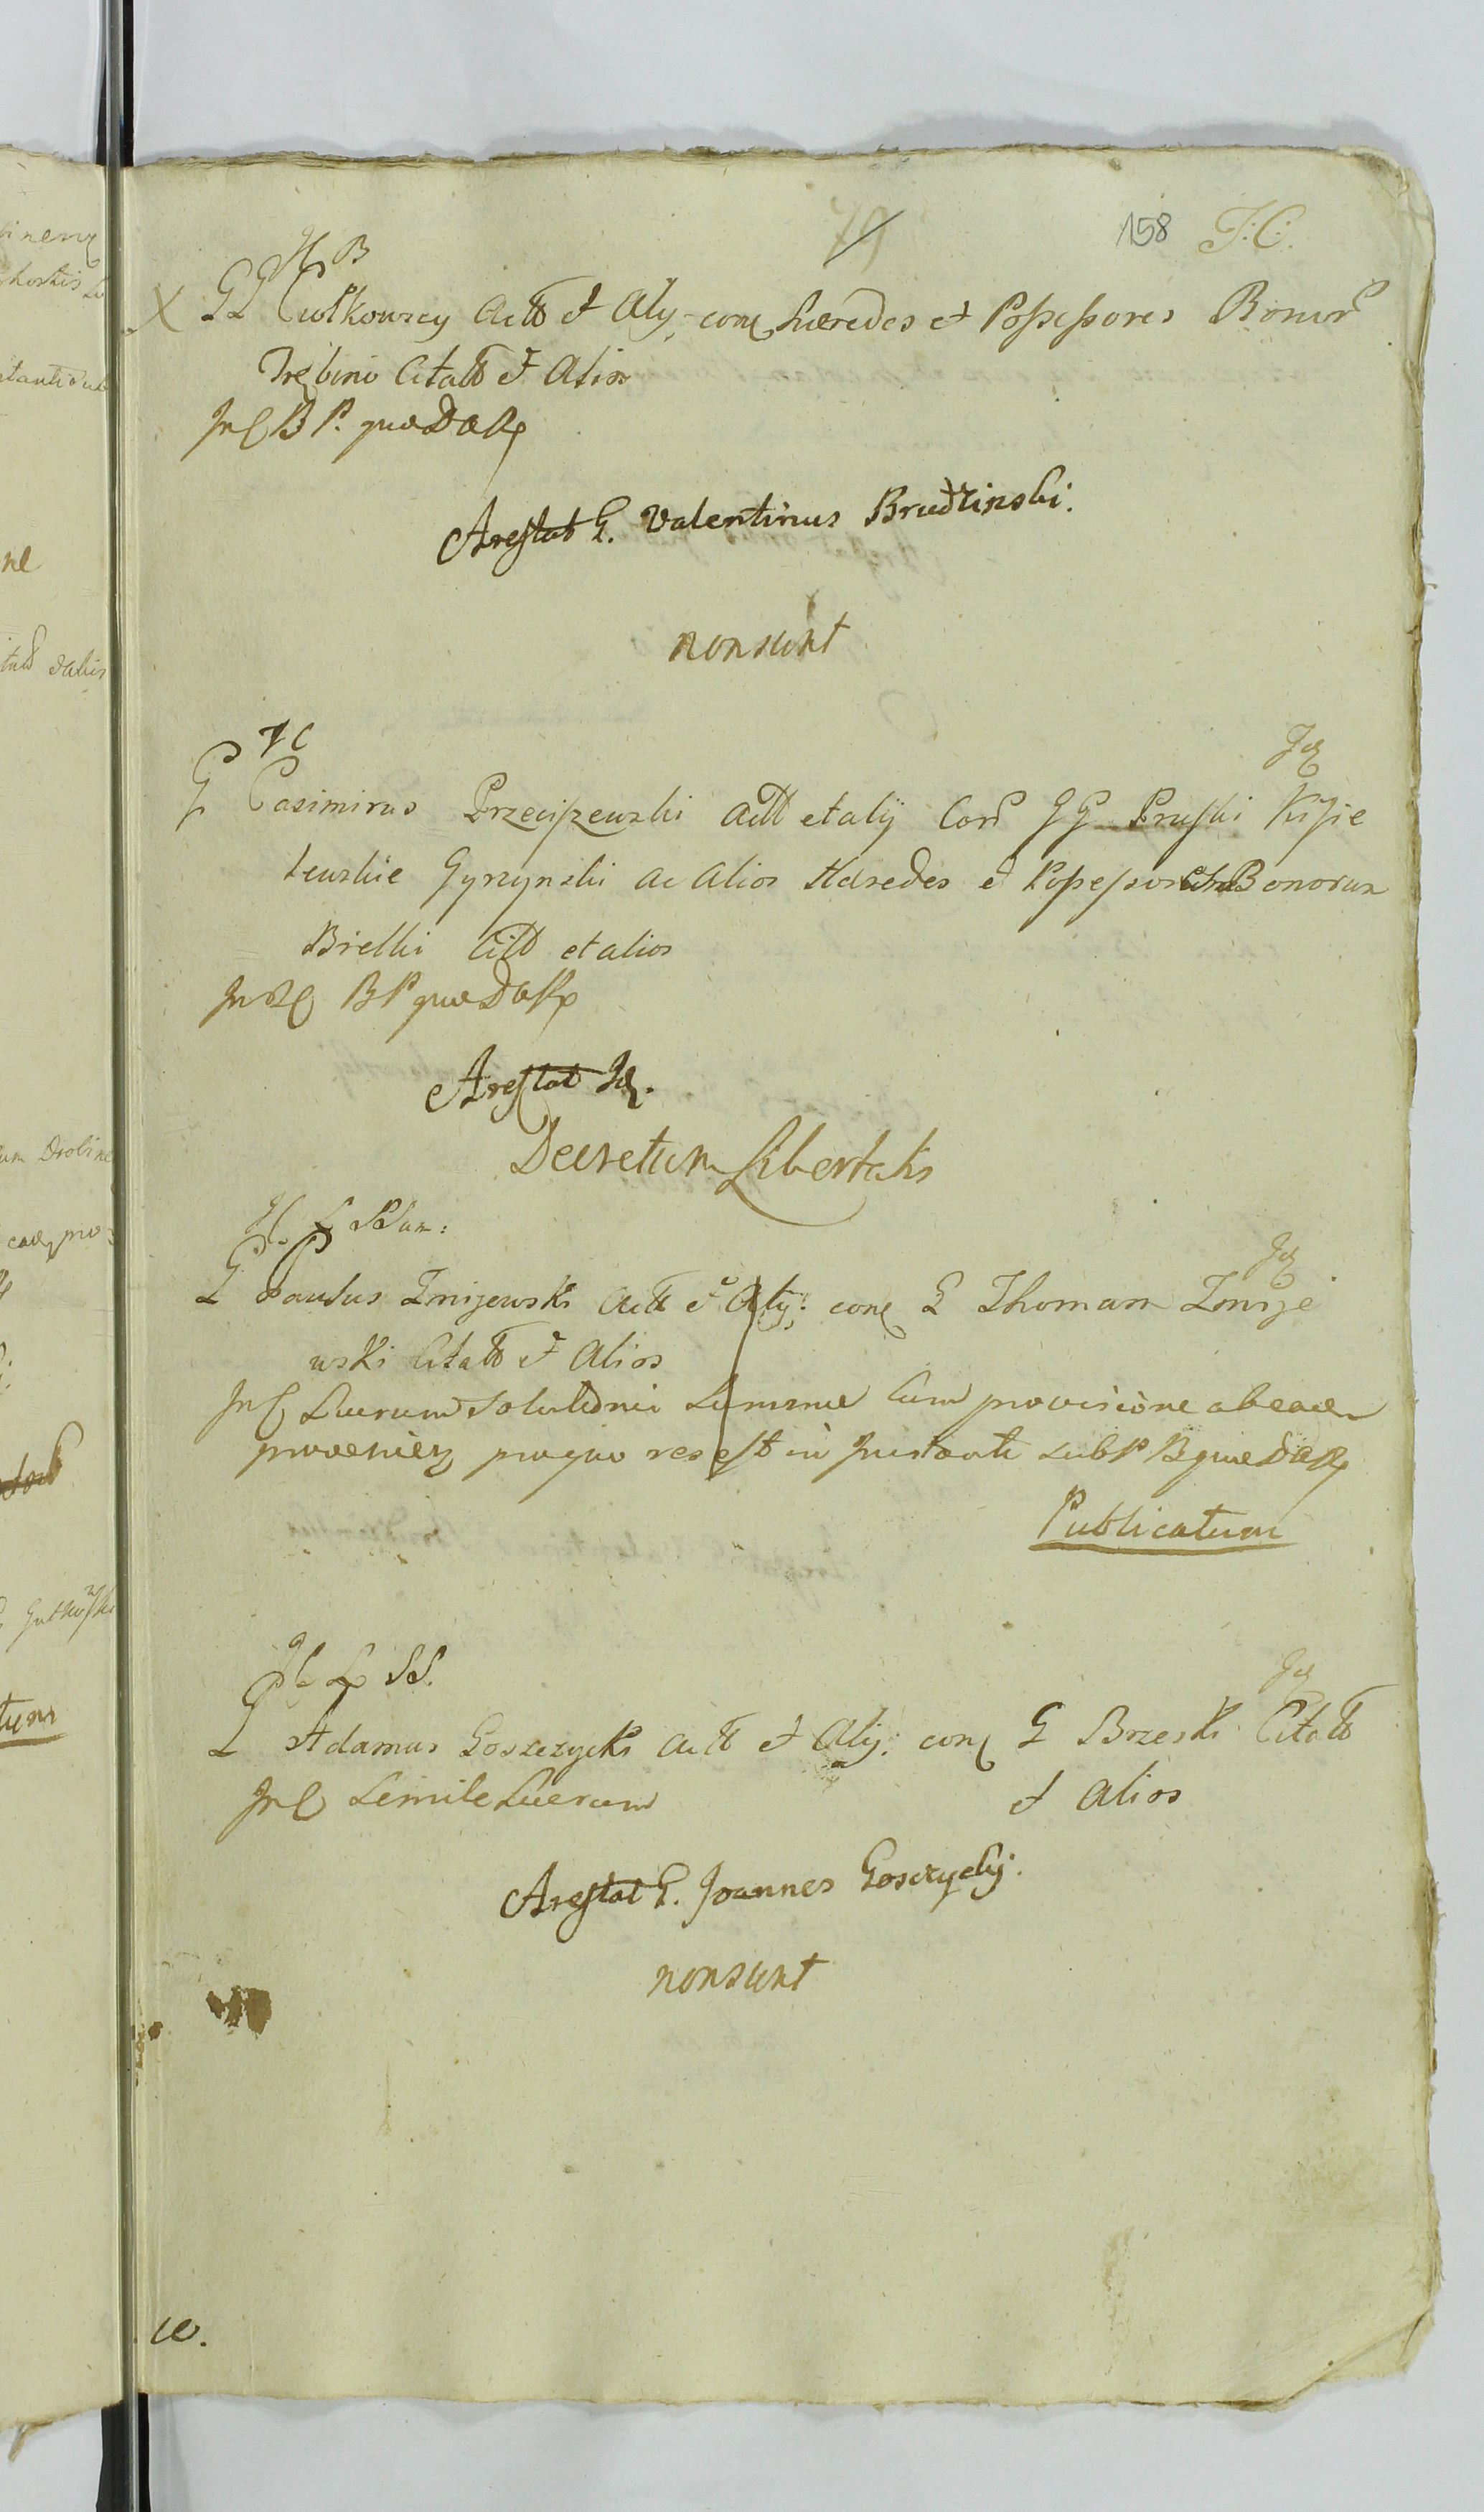 79 158 T: C:
H B
X GG Ciołkowscy Actt et Alij con hæredes et Possessores Bonor
Trębino Citatt et Alios
In B P. quæ
Arestat G. Valentinus Brudzinski.
non sunt
T C
G Casimirus Przeciszewski Actt et alij Con GG Pruski Kisie
lewskie Gyzynski ac alios Hæredes et Possessores Bonorum
Bielki Citt et alios
In B P quæ
Arestat Id.
Decretum Libertatis
G Paulus Żmijewski Actt et Alij: con G Thomam Żmije
wski Citatt et Alios
In Lucrum solutionis Summæ cum provisione ab ea
provenien pro quo res est in Instanti sub P B quæ
Publicatum
L SS.
G Adamus Goszczycki Actt et Alij: con G Brzeski Citatt
et Alios
In Simile Lucrum
Arestat G. Joannes Gosczycki.
non sunt